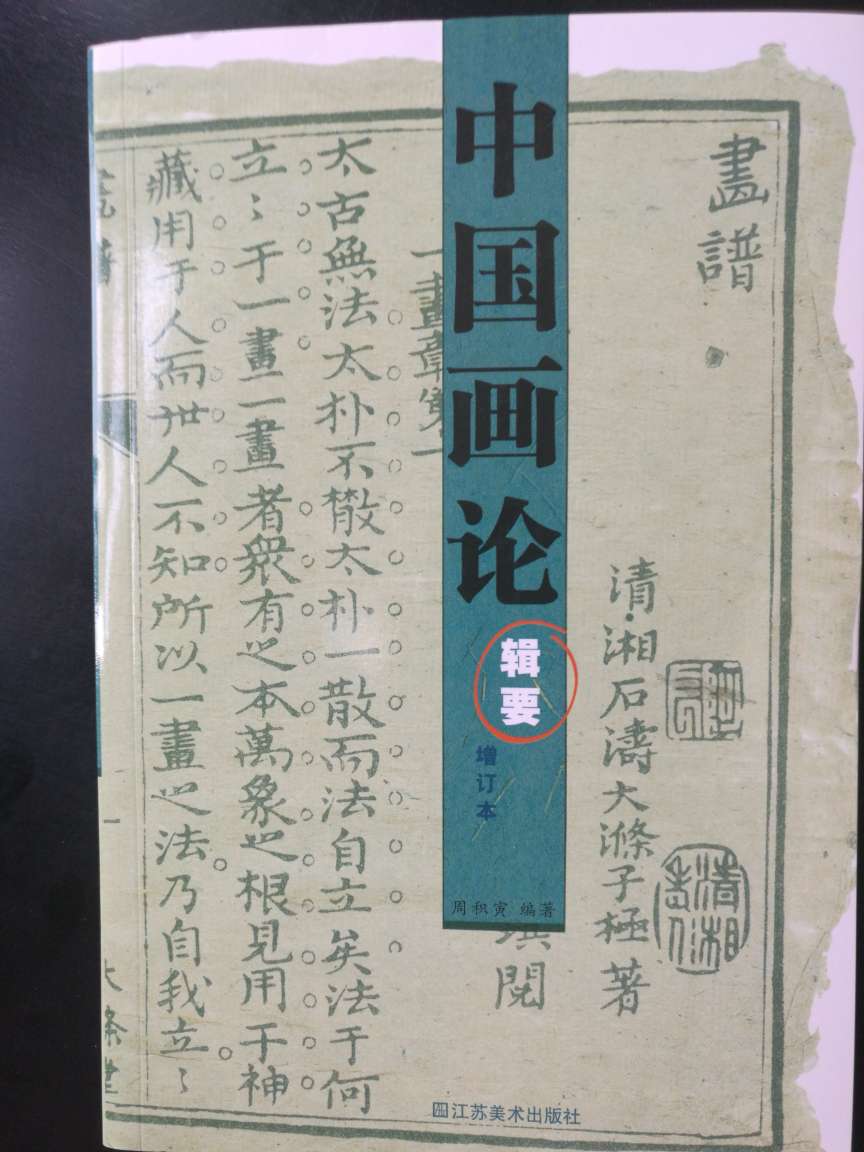 中国画论
辑要
增订本
周积寅 编著
畫譜
清湘石濤大滌子極著
閱
一畫章第一
太古無法太朴不散太朴一散而法自立矣法于何
立〻于一畫一畫者衆有之本萬象之根見用于神
藏用于人而世人不知所以一畫之法乃自我立〻
江苏美术出版社